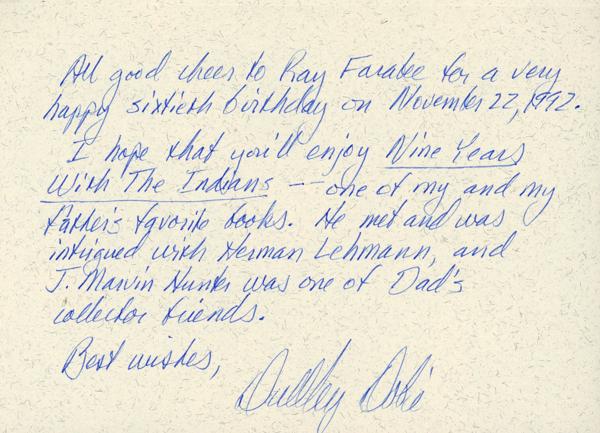 All good cheer to Ray Farabee for a very
happy sixtieth birthday on November 22, 1992.
I hope that you'll enjoy Nine Years
With The Indians -- one of my and my
father's favorite books. He met and was
intrigued with Herman Lehmann, and
J. Marvin Hunter was one of Dad's
collector friends.
Best wishes,
Dudley Dobie